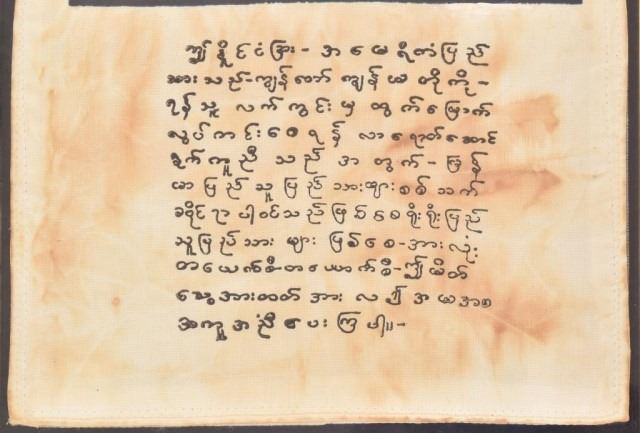 ဤနိုင်ငံခြား-အမေရိကံပြည်
သားသည်-ကျွန်တော်ကျွန်မတို့ကို-
ရန်သူလက်တွင်းမှထွက်မြောက်
လွပ်ကင်းစေရန်လာရောတ်ဆောင်
ရွက်ကူညီသည်အတွက်-မြန်
မာပြည်သူပြည်သားများစစ်သက်
ခရိုင်ဉာပါဝင်သည်ဖြစ်စေရိုးရိုးပြည်
သူပြည်သားများဖြစ်စေ-အားလုံး
တယေက်စီ-တယောက်စီ-ဤမိတ်
ဆွေအားတတ်အားလ၍အမအစ
အကူအညီပေးကြပါ။-